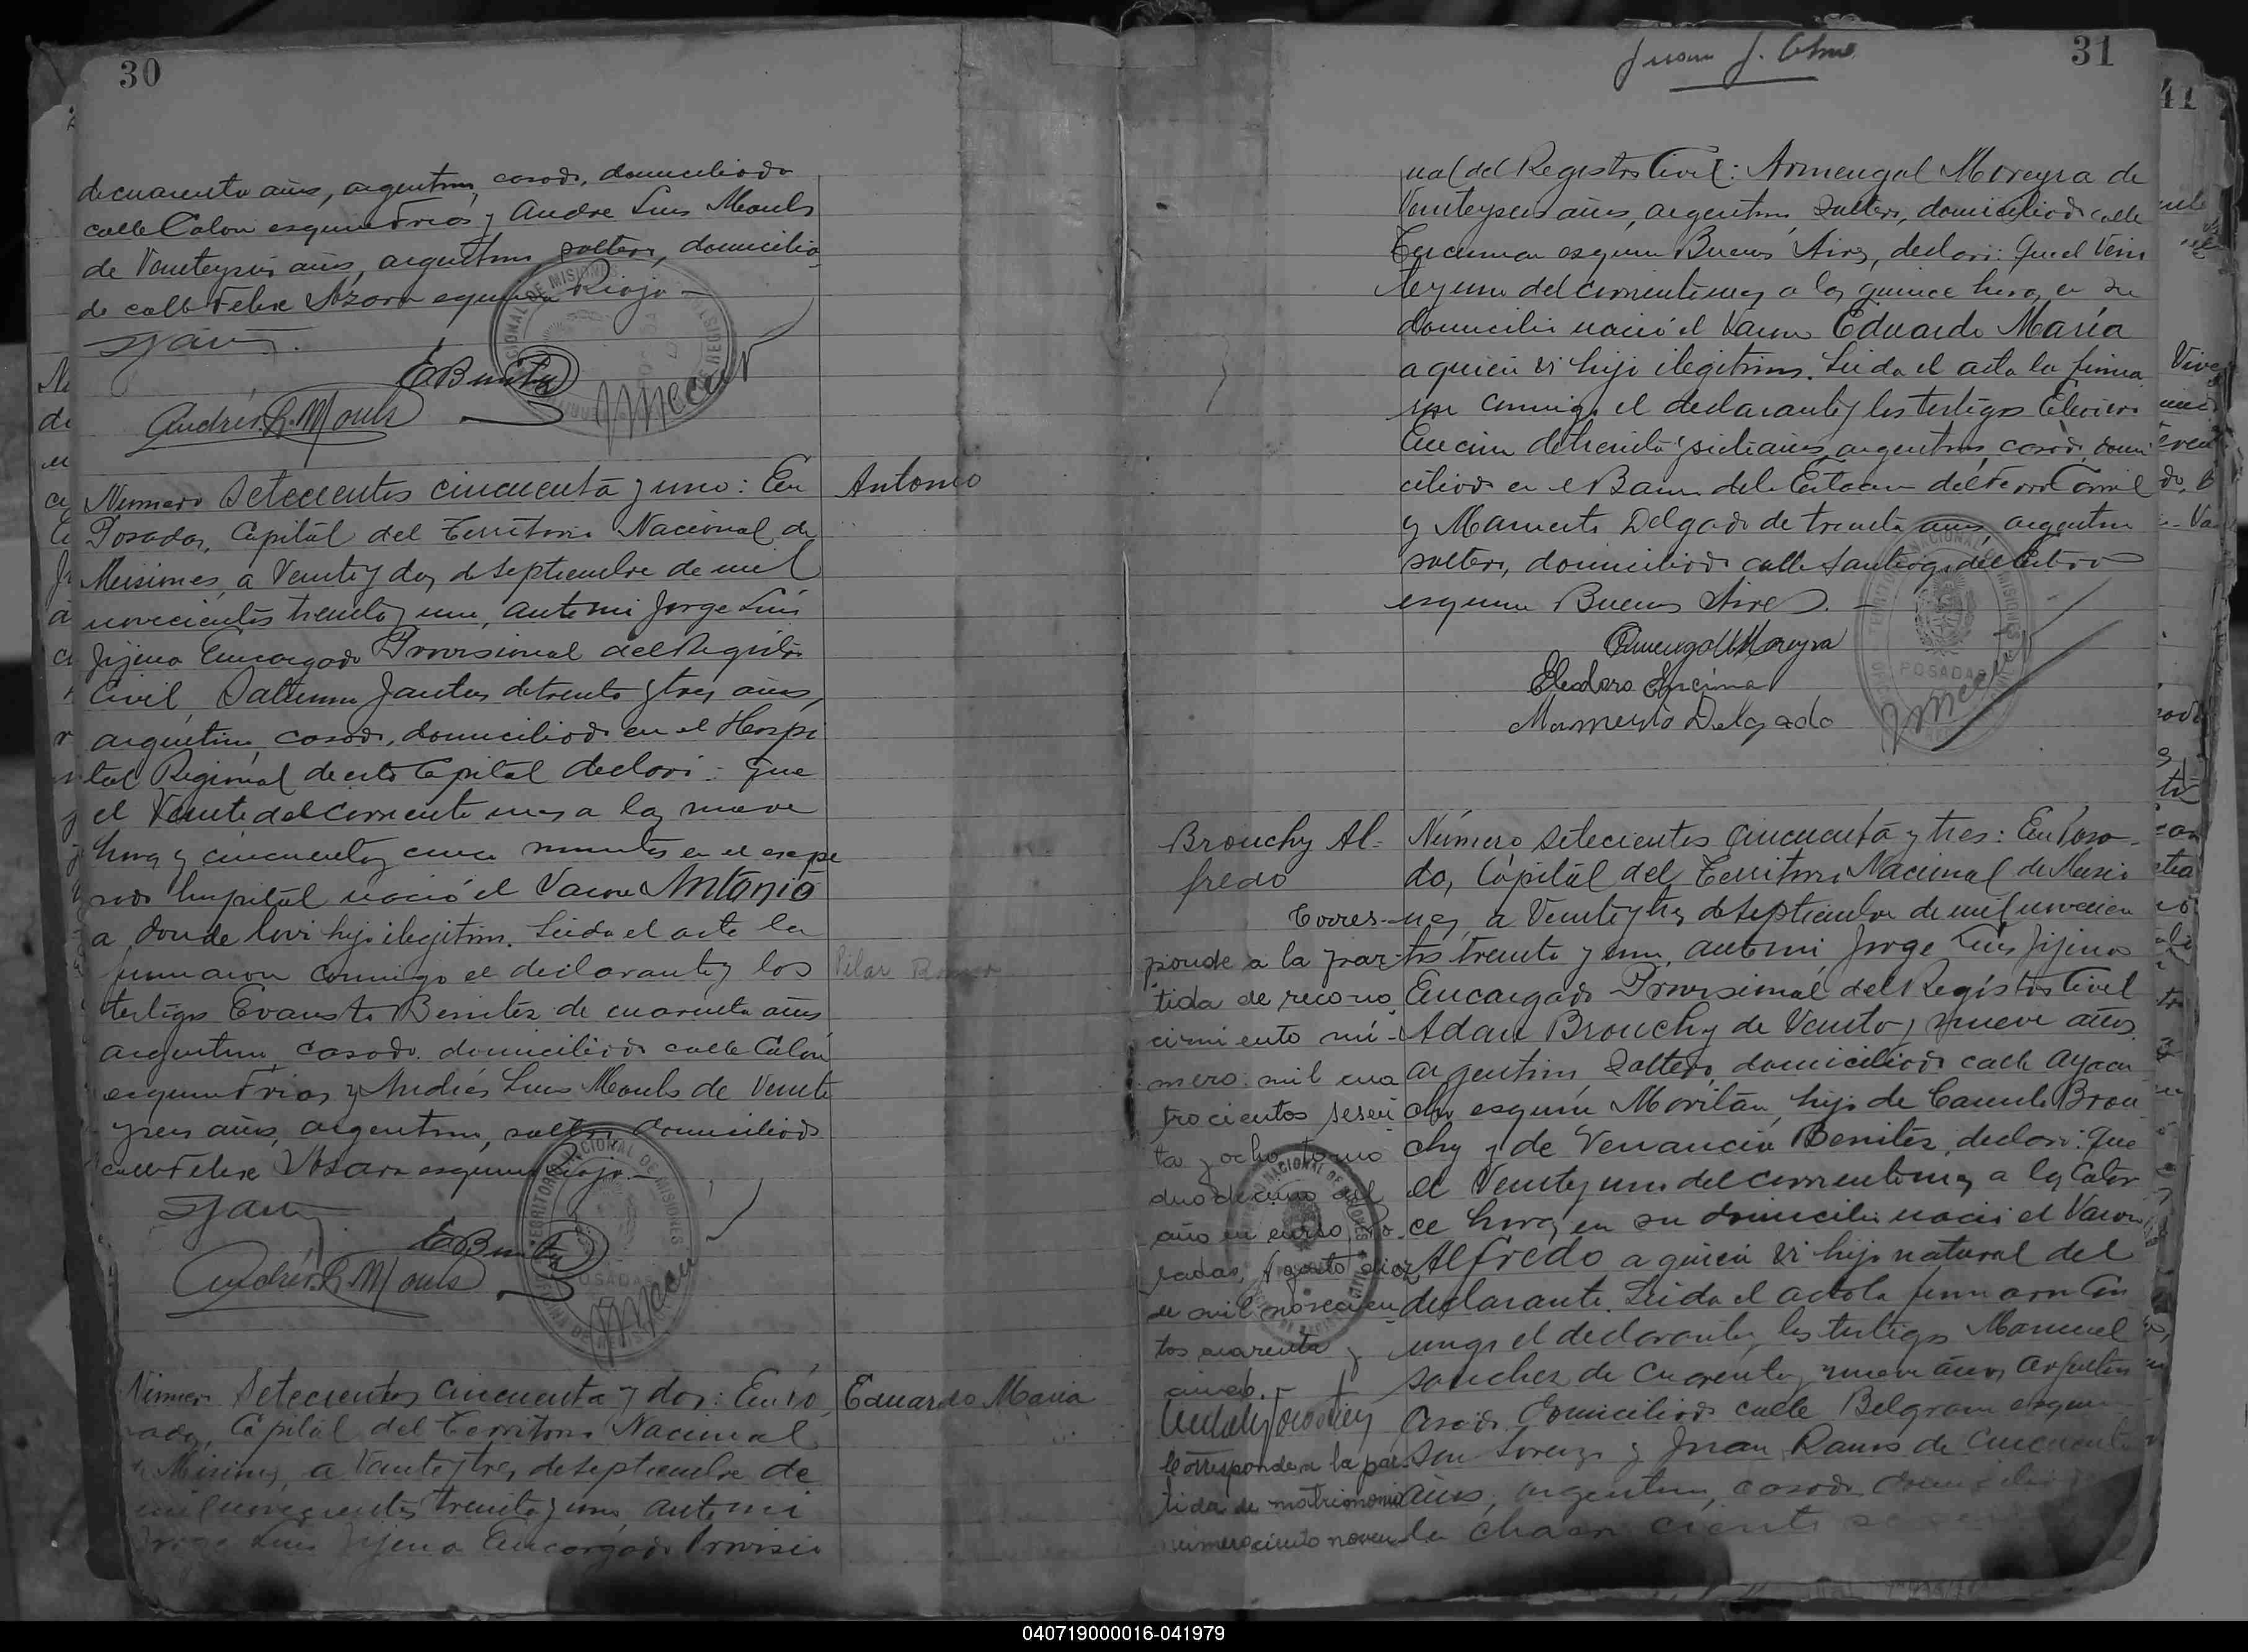 30
de cuarenta años, argentino, casado, domiciliado
calle Colon esquina Frias y Andre Luis Mouls
de Veinteyseis años, argentino, soltero, domicilia-
do calle Felix Azara esquina Rioja -
E Benitez
Andrés L. Mouls
Número Setecientos cincuenta y uno: En
Posadas, Capital del Territorio Nacional de
Misiones, a Veinte y dos de Septiembre de mil
novecientos treinta y uno, ante mi Jorge Luis
Jijena Encargado Provisional del Registro
Civil, Santos de treinta y tres años,
argentino, casado, domiciliado en el Hospi
tal Regional de esta Capital declaró: Que
el Veinte del corriente mes a las nueve
horas y cincuenta y cinco minutos en el expre
sado hospital nació el Varon Antonio
a donde lo vi hijo ilegitimo. Leida el acta la
firmaron conmigo el declarante y los
testigos Evaristo Benitez de cuarenta años
argentino, casado, domiciliado calle Colón
esquina Frias y Andrés Luis Mouls de Veinte
y seis años, argentino, soltero, domiciliado
calle Felix Azara esquina Rioja. -
E Benitez
Andrés L. Mouls
Antonio
Pilar
Número Setecientos cincuenta y dos: En Po
sadas, Capital del Territorio Nacional
de Misiones, a Veinteytres de Septiembre de
mil novecientos treinta y uno, ante mi
Jorge Luis Jijena Encargado Provisio
Eduardo Maria
Juan J.
31
nal del Registro Civil: Armengol Moreyra de
Veinteyseis años, argentino, soltero, domiciliado calle
Tucuman esquina Buenos Aires, declaró: Que el Vein
teyuno del corriente mes a las quince horas en su
domicilio nació el Varon Eduardo María
a quien vi hijo ilegitimo. Leida el acta la firma
ron conmigo el declarante y los testigos Eleodoro
Encina de treinta y siete años, argentino, casado, domi
ciliado en el Barrio de la Estacion del Ferro Carril
y Mamerto Delgado de treinta años, argentino
soltero, domiciliado calle Santiago del Estero
esquina Buenos Aires. -
Armengol Moreyra
Eleodoro Encina
Mamerto Delgado
POSADAS
Brouchy Al-
fredo
Corres-
ponde a la par-
tida de recono
cimiento nú-
mero: mil cua
trocientos sesen
ta y ocho tomo
duodecimo del
año en curso, Po-
sadas, Agosto diez
de mil novecien
tos cuarenta y
cinco. -
Corresponde a la par-
tida de matrimonio
número ciento noven
Número Setecientos Cincuenta y tres: En Posa-
das, Capital del Territorio Nacional de Misio
nes, a Veinteytres de Septiembre de mil novecien
tos treinta y uno, ante mi, Jorge Luis Jijena
Encargado Provisional del Registro Civil
Adan Brouchy de Veinte y nueve años,
argentino, soltero, domiciliado calle Ayacu
cho esquina Morilán, hijo de Camilo Brou
chy y de Venancia Benitez, declaró: Que
el Veinteyuno del corriente mes a las Cator
ce horas, en su domicilio nació el Varon
Alfredo a quien vi hijo natural del
declarante. Leida el acta la firmaron Con
migo el declarante y los testigos Manuel
Sanchez de Cuarenta y nueve años, argentino
casado domiciliado calle Belgrano esquina
San Lorenzo y Juan Ramos de Cincuenta
años, argentino, casado, domiciliado
la Chacra ciento
040719000016-041979